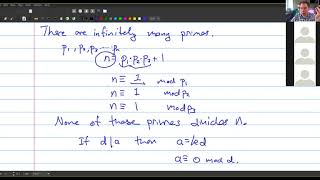 There are infinitely many primes.
p₁, p₂, p₃ ... pₖ
n = p₁·p₂·p₃ + 1
n ≡ 1 mod p₁
n ≡ 1 mod p₂
n ≡ 1 mod p₃
None of these primes divides n.
If d|a then a=kd
a ≡ 0 mod d.